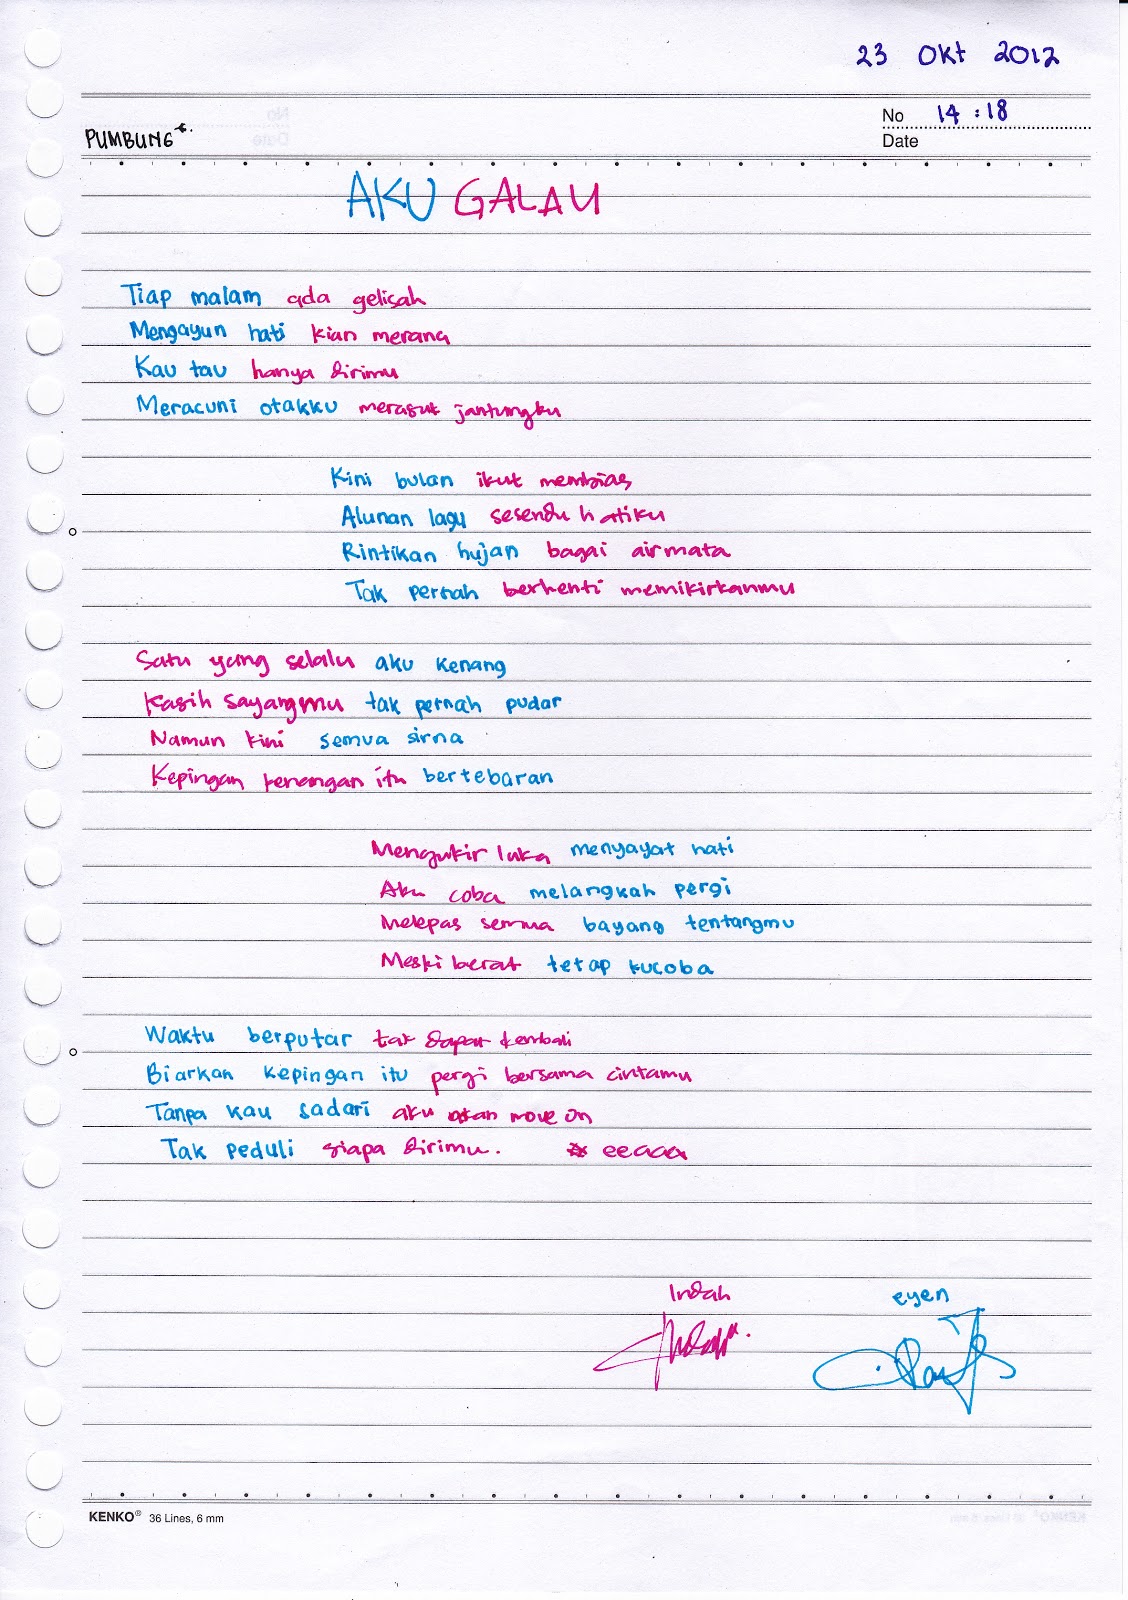 23 Okt 2012
No 14:18
PUMBUNG
Date
AKU GALAU
Tiap malam ada gelisah
Mengayun hati kian merana
Kau tau hanya dirimu
Meracuni otakku merasuk jantungku
Kini bulan ikut membias
Alunan lagu sesendu hatiku
Rintikan hujan bagai airmata
Tak pernah berhenti memikirkanmu
Satu yang selalu aku kenang
Kasih sayangmu tak pernah pudar
Namun kini semua sirna
Kepingan kenangan itu bertebaran
Mengukir luka menyayat hati
Aku coba melangkah pergi
Melepas semua bayang tentangmu
Meski berat tetap kucoba
Waktu berputar tak dapat kembali
Biarkan kepingan itu pergi bersama cintamu
Tanpa kau sadari aku akan move on
Tak peduli siapa dirimu. * eeaaa
Indah eyen
KENKO® 36 Lines, 6 mm